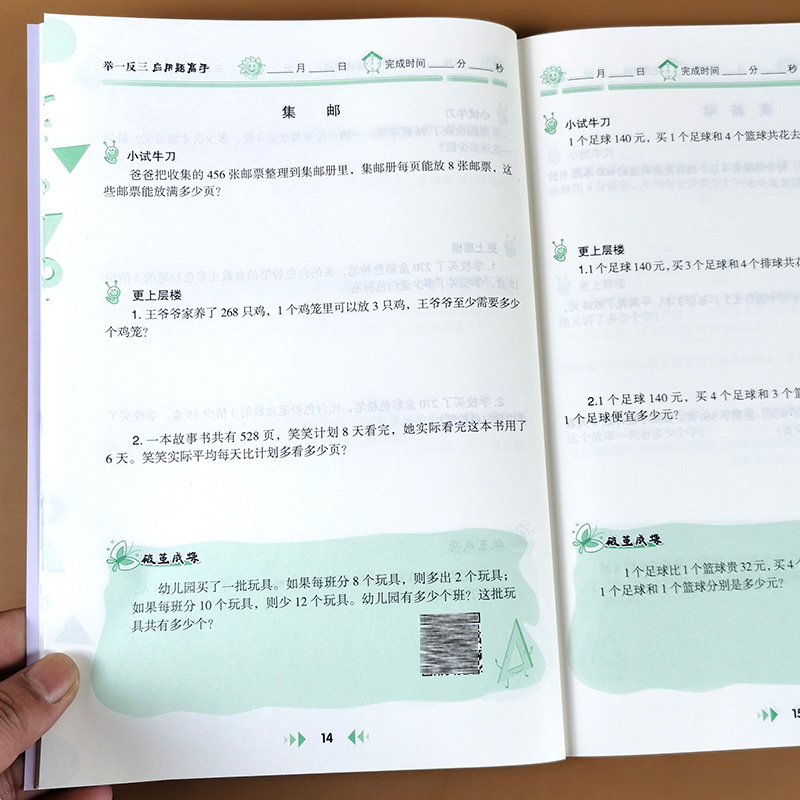 举一反三 应用题高手
____月____日 完成时间____分____秒
集 邮
小试牛刀
爸爸把收集的 456 张邮票整理到集邮册里，集邮册每页能放 8 张邮票，这
些邮票能放满多少页？
更上层楼
1. 王爷爷家养了 268 只鸡，1 个鸡笼里可以放 3 只鸡，王爷爷至少需要多少
个鸡笼？
2. 一本故事书共有 528 页，笑笑计划 8 天看完，她实际看完这本书用了
6 天。笑笑实际平均每天比计划多看多少页？
破茧成蝶
幼儿园买了一批玩具。如果每班分 8 个玩具，则多出 2 个玩具；
如果每班分 10 个玩具，则少 12 个玩具。幼儿园有多少个班？这批玩
具共有多少个？
14
____月____日 完成时间____分____秒
小试牛刀
1 个足球 140 元，买 1 个足球和 4 个篮球共花去
更上层楼
1.1 个足球 140 元，买 3 个足球和 4 个排球共花
2.1 个足球 140 元，买 4 个足球和 3 个篮
1 个足球便宜多少元？
破茧成蝶
1 个足球比 1 个篮球贵 32 元，买 4
1 个足球和 1 个篮球分别是多少元？
15